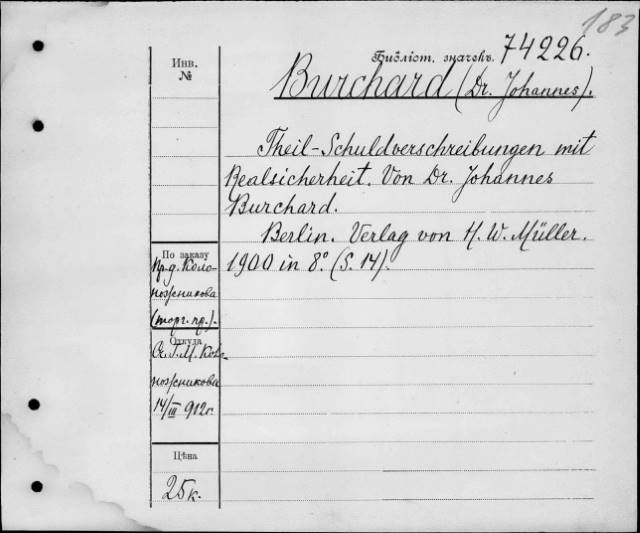 183
Инв.
№
Библіот. значекъ. 74226.
Burchard (Dr. Johannes).
Theil-Schuldverschreibungen mit
Realsicherheit. Von Dr. Johannes
Burchard.
Berlin. Verlag von H. W. Müller.
1900 in 8º (S. 14).
По заказу
Пр. д. Коло-
ножникова
(торг. пр.).
Откуда
М. Коло-
ножникова
14/III 912г.
Цѣна
25 к.